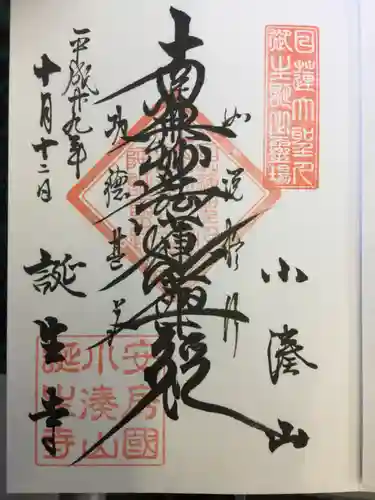 日蓮大聖人
御生誕之霊場
小湊山
如説修行
南無妙法蓮華経
功徳甚多
平成廿九年
十月十二日
誕生寺
安房國
小湊山
誕生寺